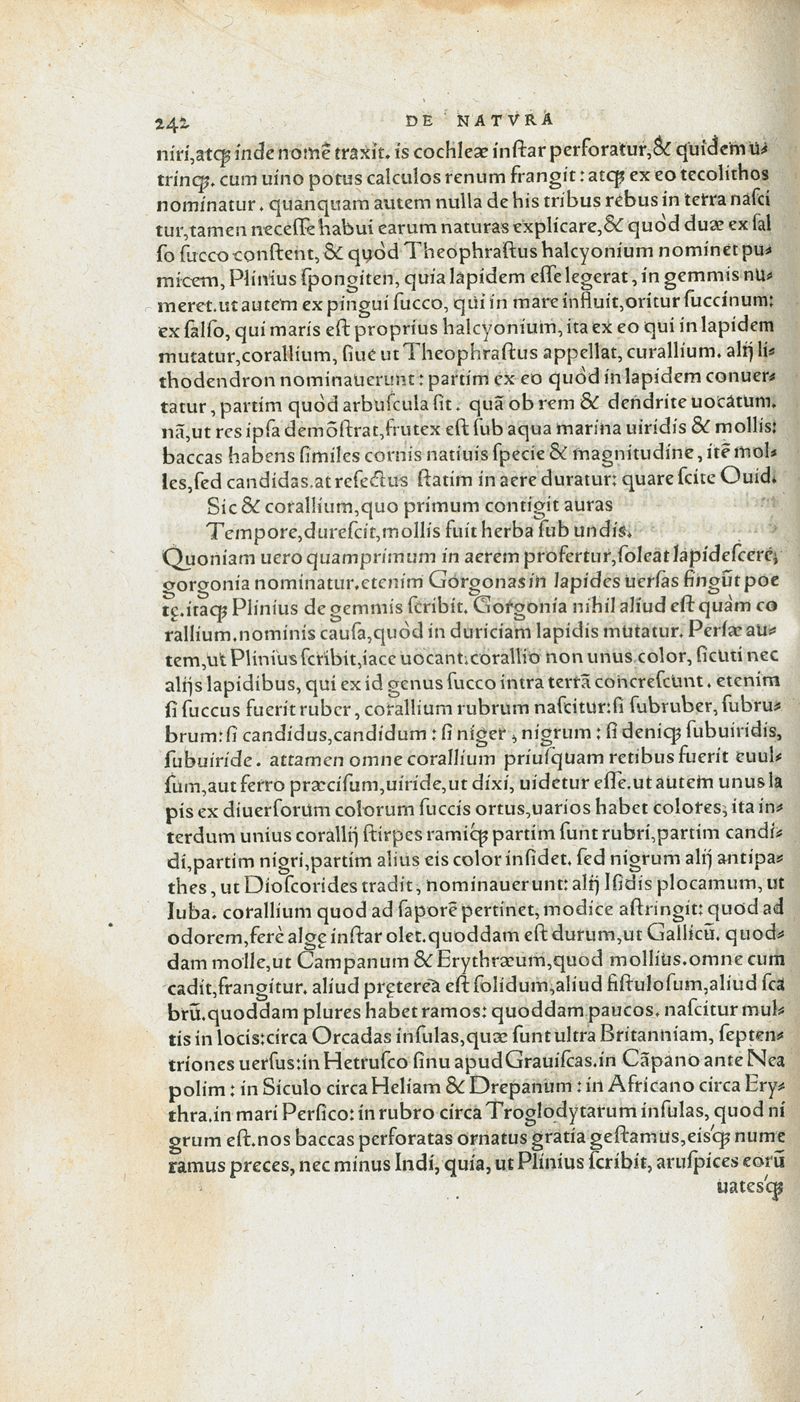 242 DE NATVRA
niri,atq́ꝫ inde nomē traxit. is cochleæ inſtar perforatur,& quidem u⸗
trinq́ꝫ. cum uino potus calculos renum frangit : atq́ꝫ ex eo tecolithos
nominatur . quanquam autem nulla de his tribus rebus in terra naſci
tur,tamen neceſſe habui earum naturas explicare,& quòd duæ ex ſal
ſo ſucco conſtent, & quòd Theophraſtus halcyonium nominet pu⸗
micem, Plinius ſpongiten, quia lapidem eſſe legerat, in gemmis nu⸗
meret.ut autem ex pingui ſucco, qui in mare influit,oritur ſuccinum:
ex ſalſo, qui maris eſt proprius halcyonium, ita ex eo qui in lapidem
mutatur,corallium, ſiue ut Theophraſtus appellat, curallium. alij li⸗
thodendron nominauerunt : partim ex eo quòd in lapidem conuer⸗
tatur , partim quòd arbuſcula ſit . quā ob rem & dendrite uocatum.
nā,ut res ipſa demōſtrat,frutex eſt ſub aqua marina uiridis & mollis:
baccas habens ſimiles cornis natiuis ſpecie & magnitudine, itē mol⸗
les,ſed candidas.at reſectus ſtatim in aere duratur: quare ſcite Ouid.
Sic & corallium,quo primum contigit auras
Tempore,dureſcit,mollis fuit herba ſub undis.
Quoniam uero quamprimum in aerem profertur,ſoleat lapideſcere,
gorgonia nominatur.etenim Gorgonas in lapides uerſas fingūt poe
tę.itaq́ꝫ Plinius de gemmis ſcribit. Gorgonia nihil aliud eſt quàm co
rallium.nominis cauſa,quòd in duriciam lapidis mutatur. Perſæ au⸗
tem,ut Plinius ſcribit,iace uocant.corallio non unus color, ſicuti nec
alijs lapidibus, qui ex id genus ſucco intra terrā concreſcunt . etenim
ſi ſuccus fuerit ruber , corallium rubrum naſcitur:ſi ſubruber, ſubru⸗
brum:ſi candidus,candidum : ſi niger , nigrum : ſi deniq́ꝫ ſubuiridis,
ſubuiride . attamen omne corallium priuſquam retibus fuerit euul⸗
ſum,aut ferro præciſum,uiride,ut dixi, uidetur eſſe.ut autem unus la
pis ex diuerſorum colorum ſuccis ortus,uarios habet colores, ita in⸗
terdum unius corallij ſtirpes ramiq́ꝫ partim ſunt rubri,partim candi⸗
di,partim nigri,partim alius eis color inſidet. ſed nigrum alij antipa⸗
thes , ut Dioſcorides tradit, nominauerunt: alij Iſidis plocamum, ut
Iuba. corallium quod ad ſaporē pertinet, modice aſtringit: quod ad
odorem,ferè algę inſtar olet.quoddam eſt durum,ut Gallicū. quod⸗
dam molle,ut Campanum & Erythræum,quod mollius.omne cum
cadit,frangitur. aliud pręterea eſt ſolidum,aliud fiſtuloſum,aliud ſca
brū.quoddam plures habet ramos: quoddam paucos. naſcitur mul⸗
tis in locis:circa Orcadas inſulas,quæ ſunt ultra Britanniam, ſepten⸗
triones uerſus:in Hetruſco ſinu apud Grauiſcas.in Cāpano ante Nea
polim : in Siculo circa Heliam & Drepanum : in Africano circa Ery⸗
thra.in mari Perſico: in rubro circa Troglodytarum inſulas, quod ni
grum eſt.nos baccas perforatas ornatus gratia geſtamus,eisq́ꝫ nume
ramus preces, nec minus Indi, quia, ut Plinius ſcribit, aruſpices eorū
uatesq́ꝫ